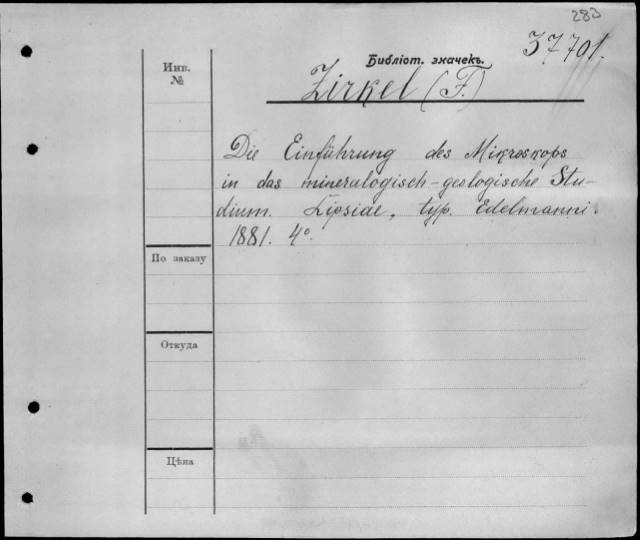 283
37701.
Библіот. значекъ.
Zirkel (F.)
Инв.
№
Die Einführung des Mikroskops
in das mineralogisch-geologische Stu-
dium. Lipsiae, typ. Edelmanni.
1881. 4°.
По заказу
Откуда
Цѣна